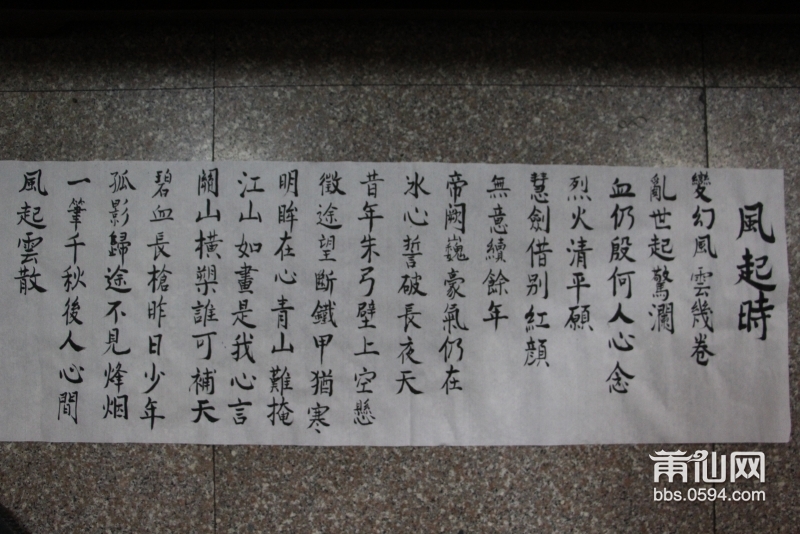 風起時
變幻風雲幾卷
亂世起驚瀾
血仍殷何人心念
烈火清平願
慧劍借别紅顔
無意續餘年
帝阙巍豪氣仍在
氷心誓破長夜天
昔年朱弓壁上空懸
徵途望斷鐵甲猶寒
明眸在心青山難掩
江山如畫是我心言
關山橫槊誰可補天
碧血長槍昨日少年
孤影歸途不見烽烟
一筆千秋後人心間
風起雲散
莆仙网
bbs.0594.com